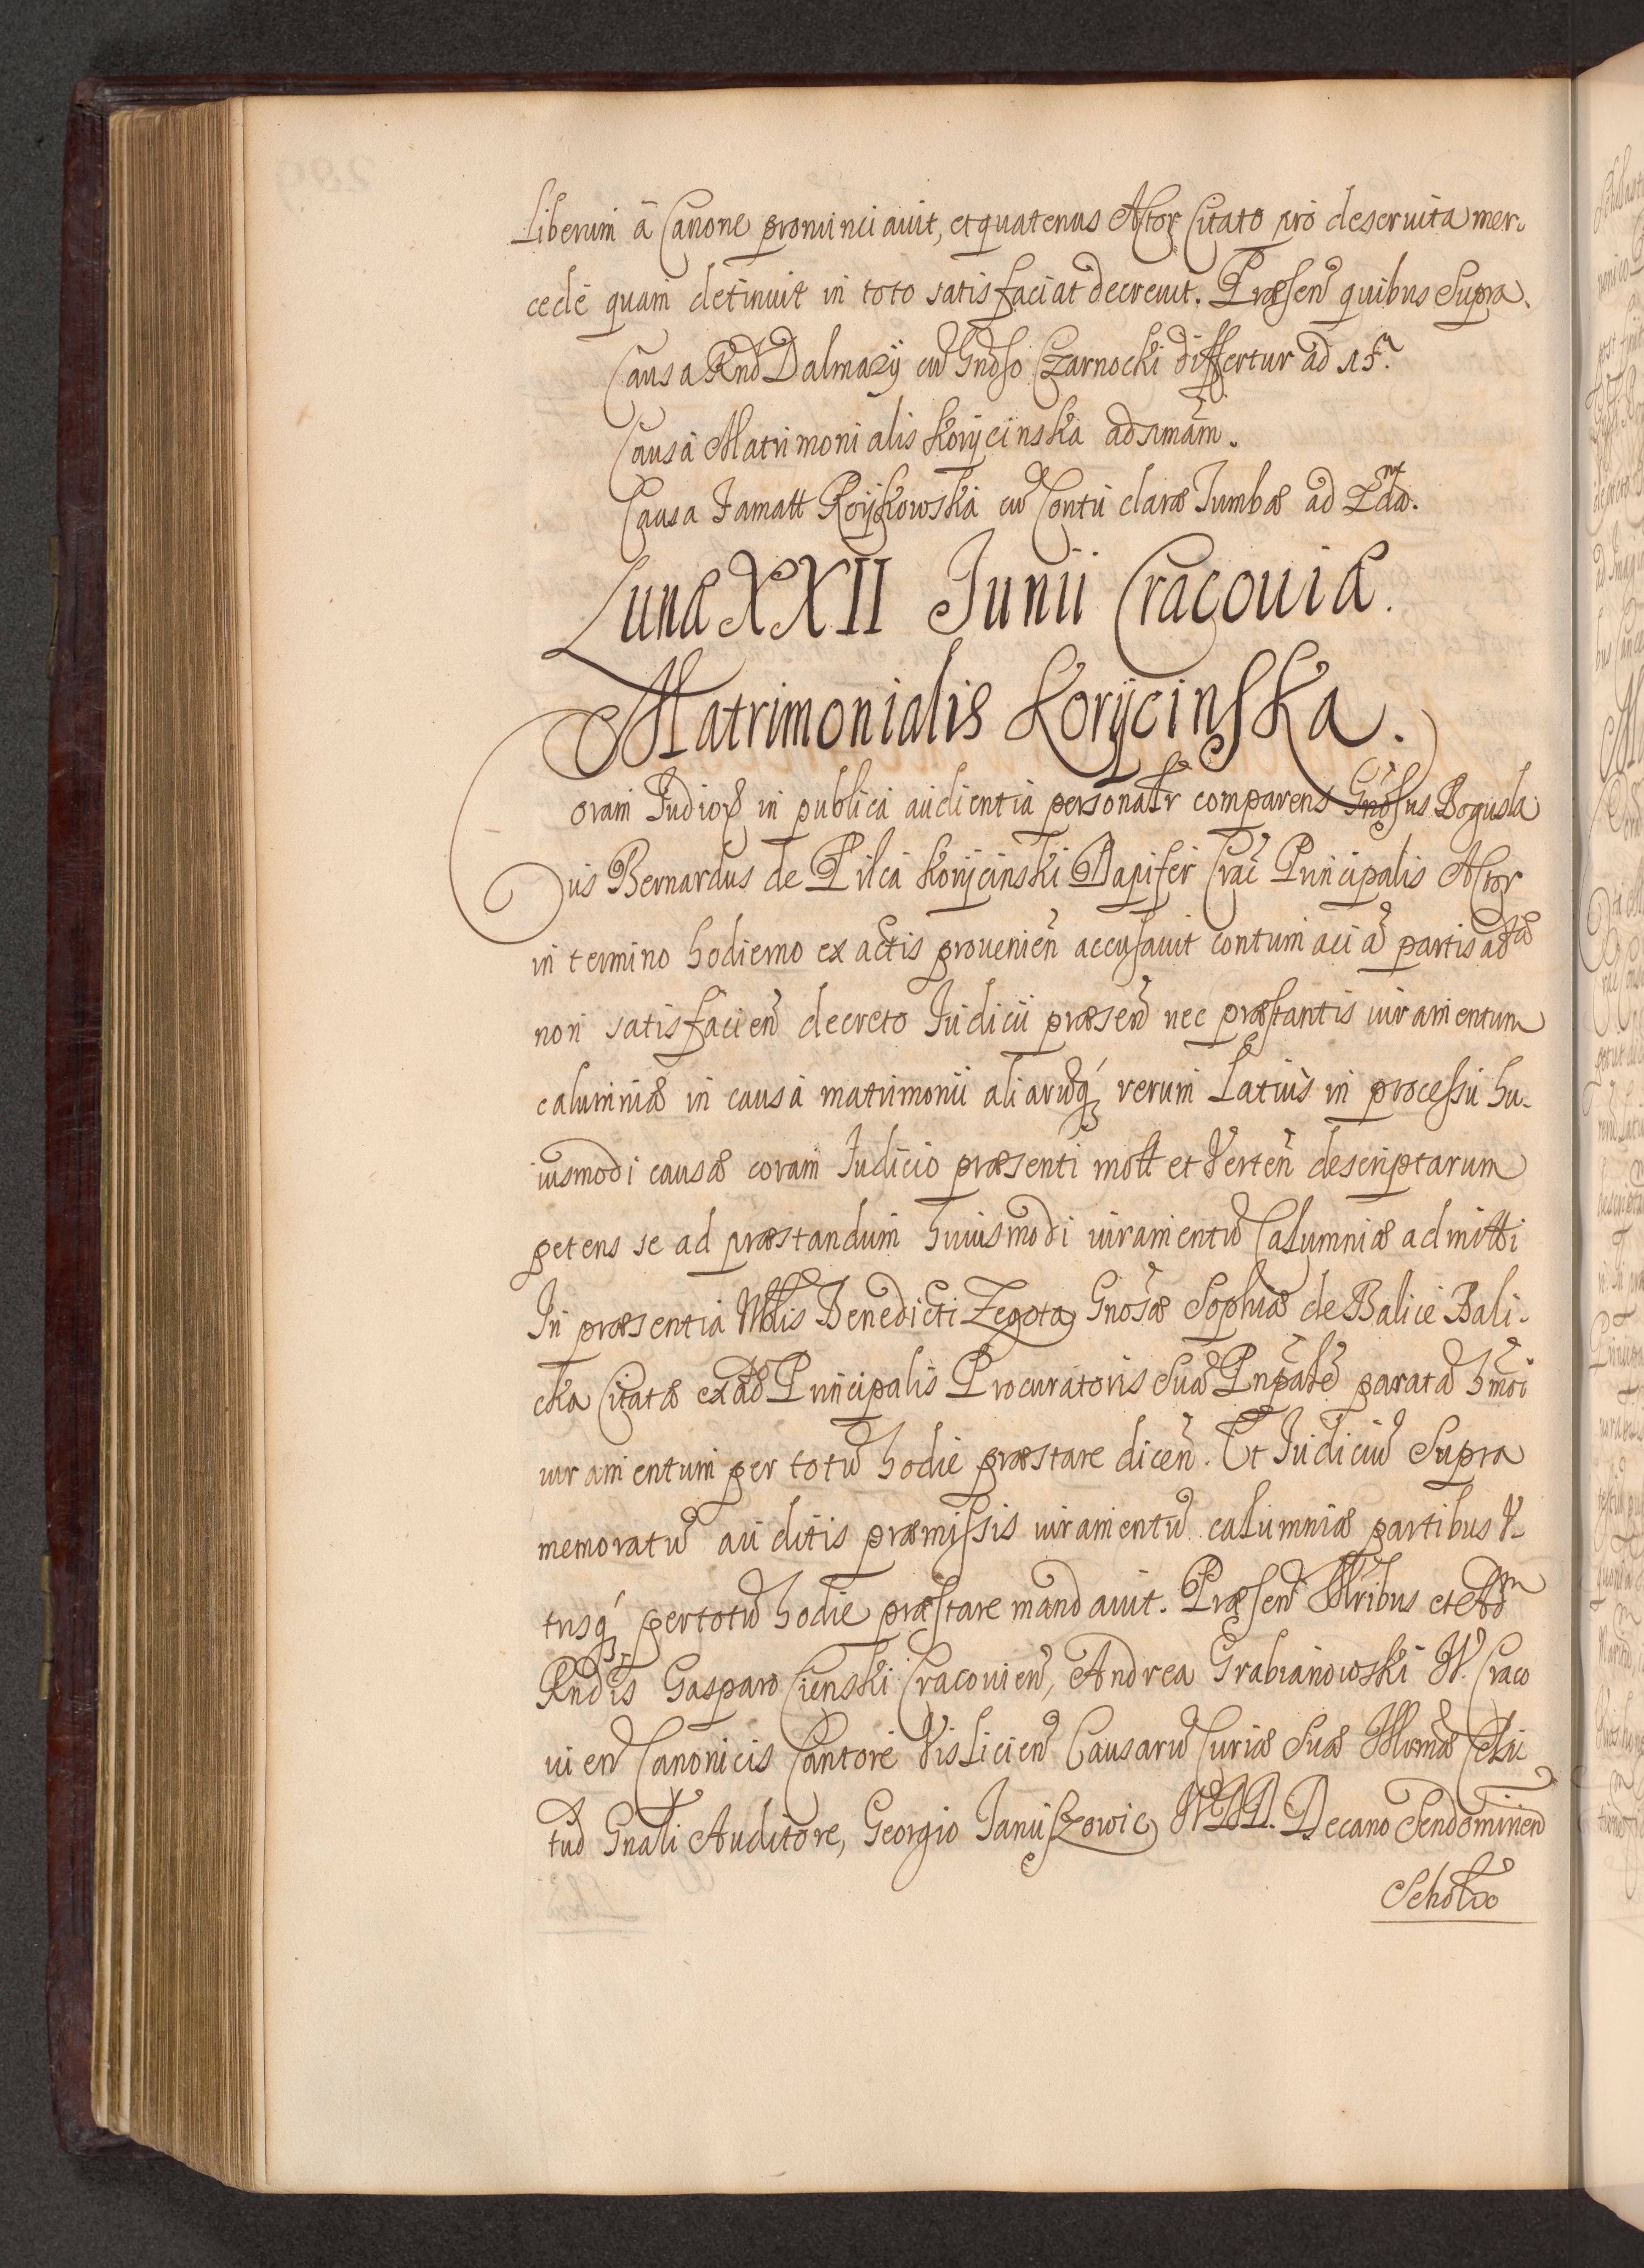 Liberum â Canone pronunciauit, et quatenus Actor Citato pro deseruita mer-
cedē quam detinuit in toto satisfaciat decreuit. Præsen̄ quibus Supra.
Causa Rnd Dalmazÿ cū Gndso Czarnocki differtur ad 15.
Causa Matrimonialis Korÿcinska ad 1mam.
Causa Famatt Roÿkowska cū Contū claræ Tumbæ ad 2dā.
Lunæ XXII Junii Cracouiæ.
Matrimonialis Korÿcinska.
Coram Judiō in publica audientia personalr comparens Gnosus Bogusla
us Bernardus de Pilca Korÿcinski Dapifer Crac̄ Principalis Actor
in termino hodierno ex actis prouenien̄ accusauit contumaciā partis adſæ
non satisfacien̄ decreto Judicii præsen̄ nec præstantis iuramentum
calumniæ in causa matrimonii aliarūq́ rerum Latius in processu hu-
iusmodi causæ coram Judicio præsenti mott et Verten̄ descriptarum
petens se ad præstandum huiusmodi iuramentū Calumniæ admitti
In præsentia Nblis Benedicti Zegota Gnosæ Sophiæ de Balice Bali-
cka Citatæ ex adō Principalis Procuratoris Suā Pnpalē paratā hmōi
iuramentum per totū hodie præstare dicen̄. Et Judiciū Supra
memoratū auditis præmissis iuramentū calumniæ partibus V-
trisq́ per totū hodie præstare mandauit. Præsen̄ Illribus et Adm
Rndis Gasparo Cienski Cracouien̄, Andrea Grabianowski W. Craco
uien̄ Canonicis Cantore Visliciен̄ Causarū Curiæ Suæ Illmæ Celsi
tud Gnali Auditore, Georgio Januszowic VJD. Decano Sendomirien̄
Scholæ